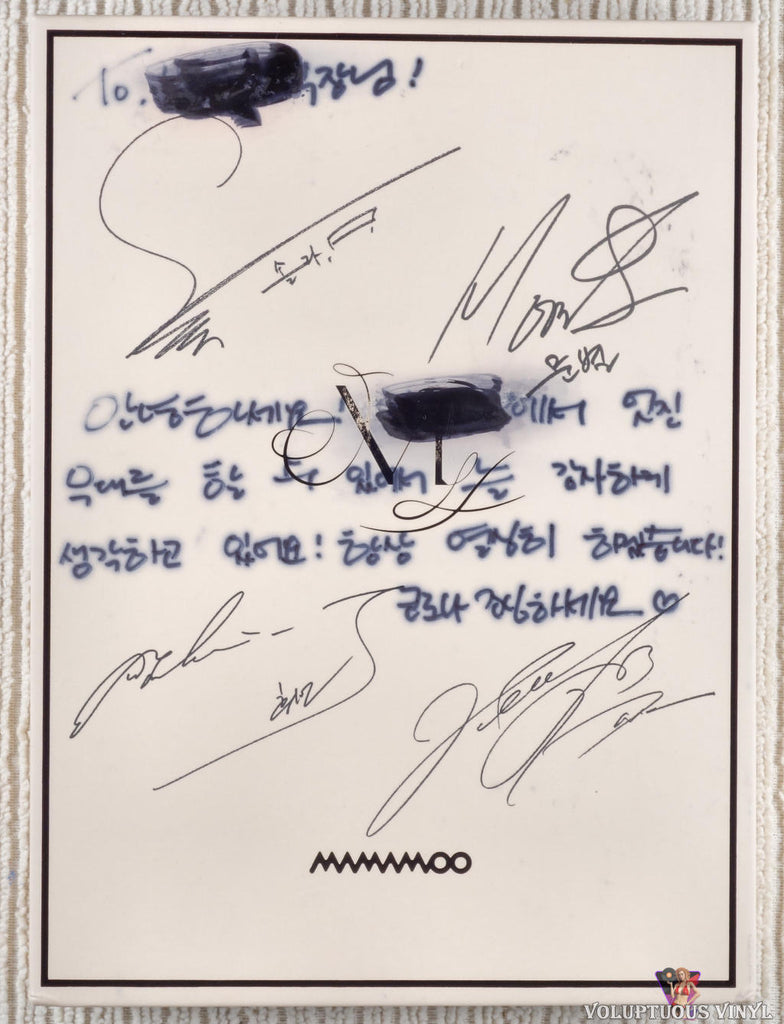 To. 장님!
솔라!
Moon
문별
안녕하세요! 에서 멋진
무대를 할 수 있어서 늘 감사하게
생각하고 있어요! 항상 열심히 하겠습니다!
코로나 조심하세요 ♡
휘인
MAMAMOO
VOLUPTUOUS VINYL